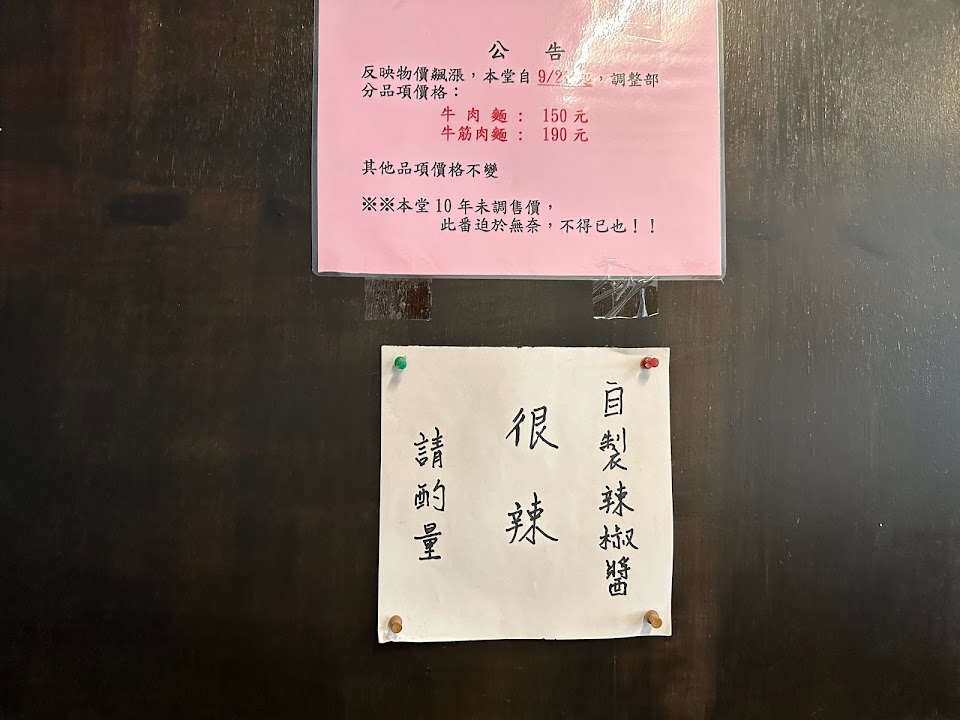 公 告
反映物價飆漲，本堂自 9/2 ，調整部
分品項價格：
牛 肉 麵 ： 150 元
牛筋肉麵 ： 190 元
其他品項價格不變
※※本堂 10 年未調售價，
此番迫於無奈，不得已也！！
自製辣椒醬
很辣
請酌量